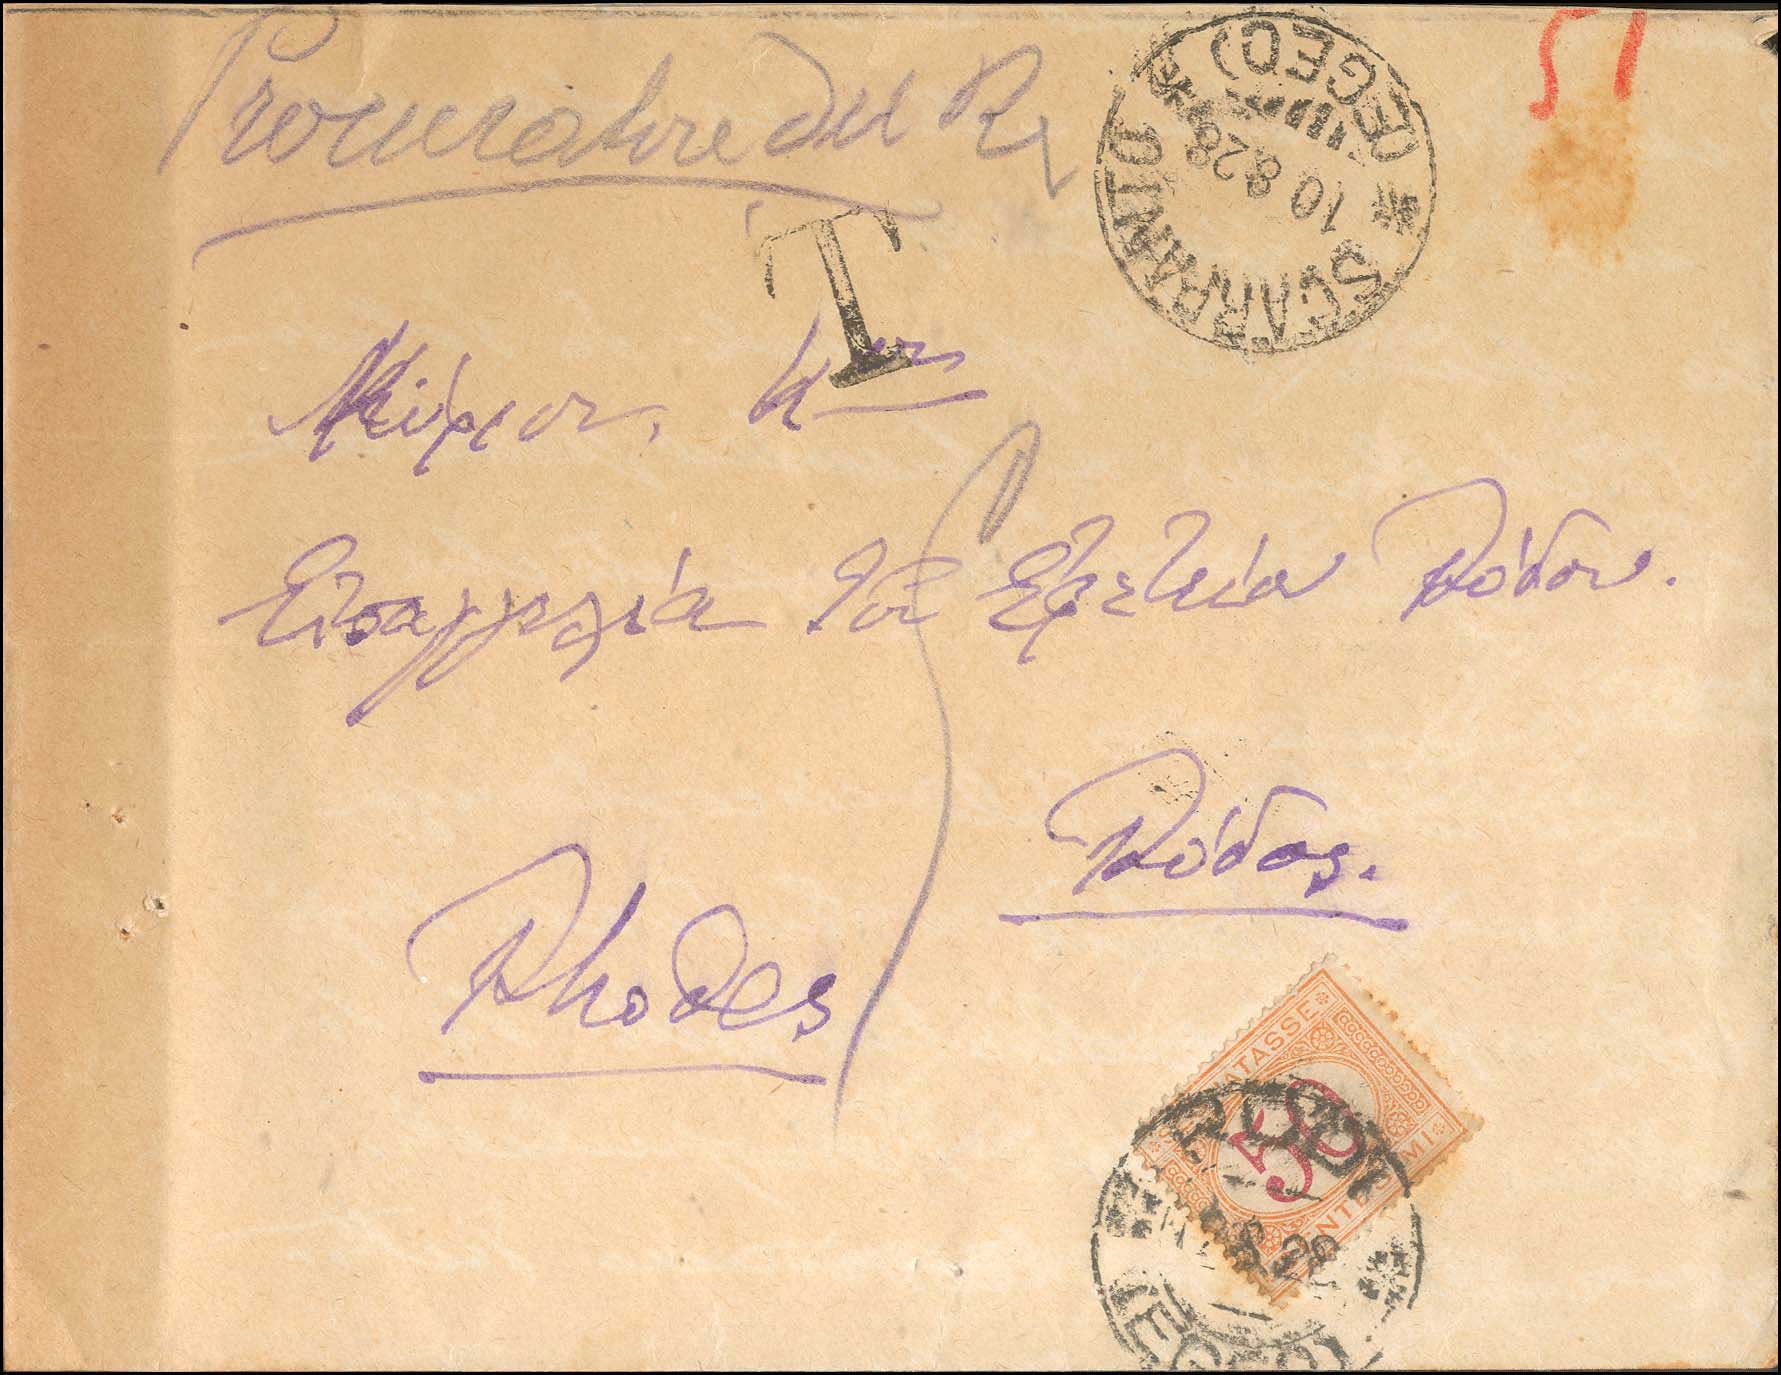 Procuratore del Re
51
SCARPANTO * (EGEO) *
10 8 28
T
Κύριον, Κον
Εισαγγελέα του Εφετείου Ρόδου.
Ρόδος.
Rhodes
SEGNATASSE
50
CENTESIMI
RODI * (EGEO) *
8.28